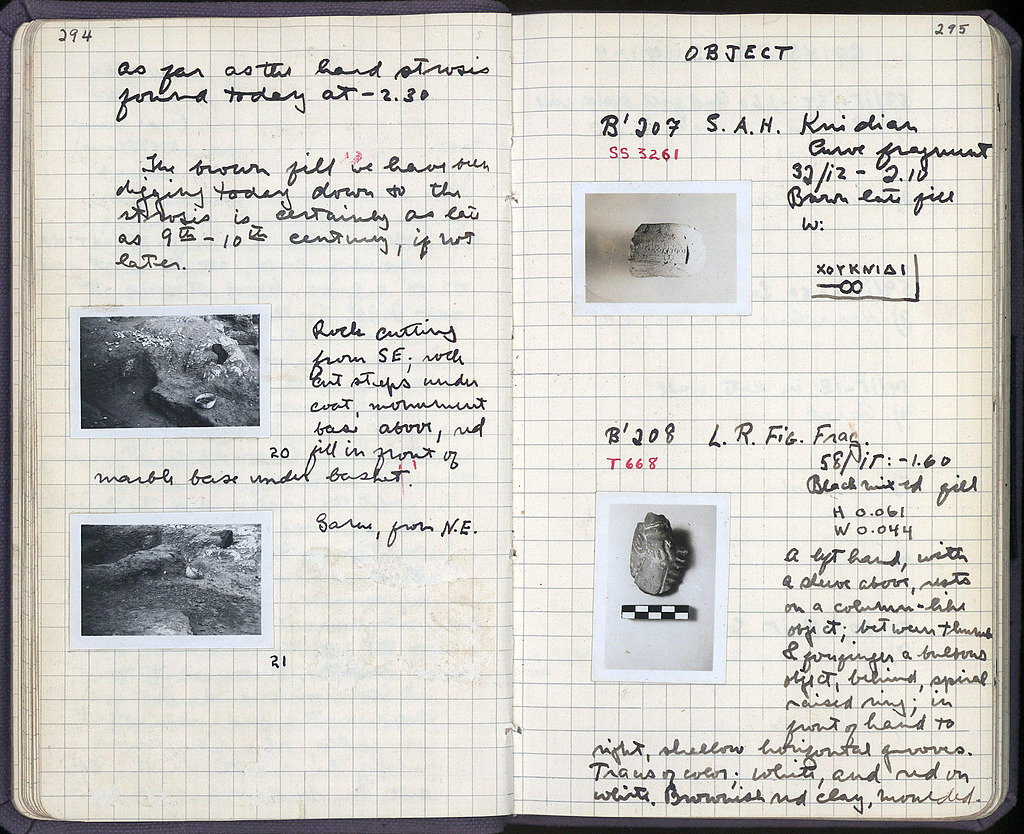 294
as far as the hard strosis
found today at -2.30
The brown fill we have been
digging today down to the
strosis is certainly as late
as 9th - 10th century, if not
later.
Rock cutting
from SE; rock
cut steps under
coat, monument
base above, red
20 fill in front of
marble base under basket.
Same, from N.E.
21
295
OBJECT
B' 207 S.A.H. Knidian
SS 3261
Curve fragment
32/ΙΖ - 2.10
Brown late fill
W:
ΧΟΥΚΝΙΔΙ
B' 208 L. R. Fig. Frag.
T 668
58/ΙΤ: -1.60
Black mixed fill
H 0.061
W 0.044
A left hand, with
a sleeve above, rests
on a column-like
object; between thumb
& forefinger a bulbous
object, behind, spiral
raised ring; in
front of hand to
right, shallow horizontal grooves.
Traces of color; white, and red on
white. Brownish red clay, moulded.